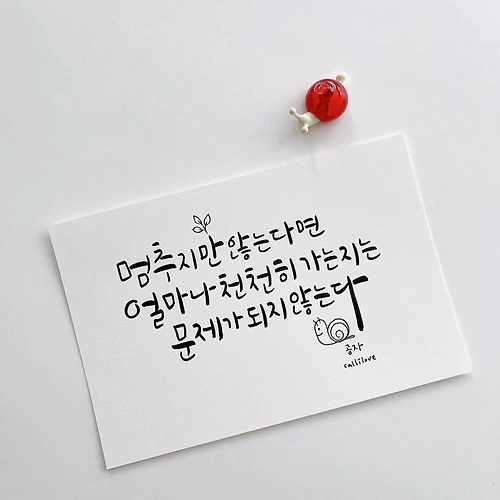 멈추지만 않는다면
얼마나 천천히 가는지는
문제가 되지않는다
공자
callilove